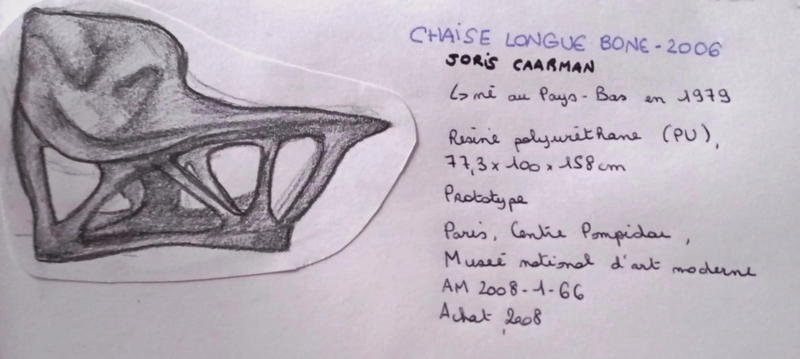 CHAISE LONGUE BONE - 2006
JORIS CAARMAN
↳ né au Pays-Bas en 1979
Résine polyuréthane (PU),
77,3 x 100 x 158 cm
Prototype
Paris, Centre Pompidou,
Museé national d'art moderne
AM 2008-1-66
Achat, 2008